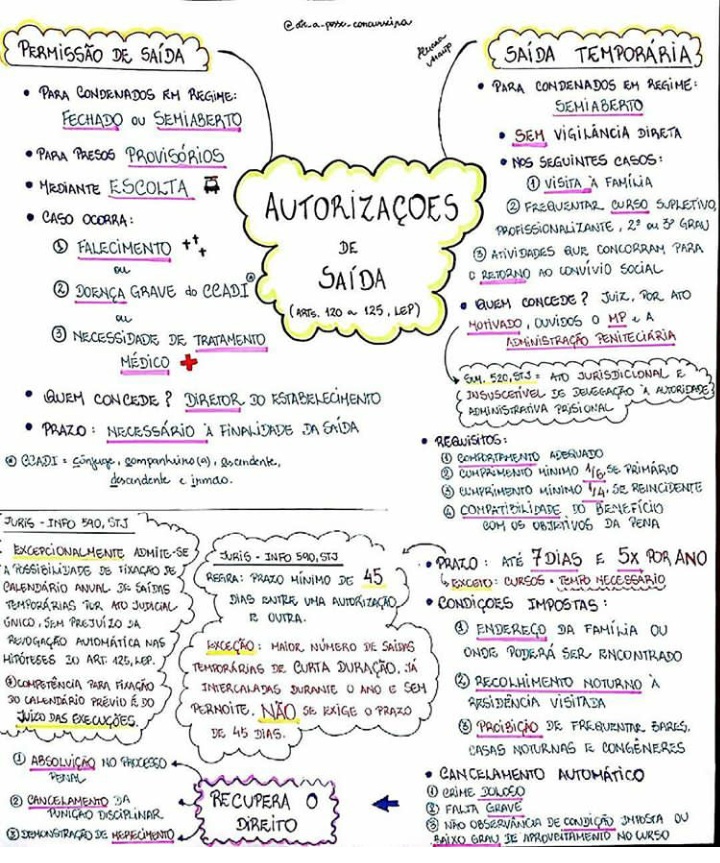 @de_a_posse_concurseira
PERMISSÃO DE SAÍDA
• PARA CONDENADOS EM REGIME:
FECHADO OU SEMIABERTO
• PARA PRESOS PROVISÓRIOS
• MEDIANTE ESCOLTA
• CASO OCORRA:
① FALECIMENTO
OU
② DOENÇA GRAVE do CCADI
OU
③ NECESSIDADE DE TRATAMENTO
MÉDICO
• QUEM CONCEDE? DIRETOR DO ESTABELECIMENTO
• PRAZO: NECESSÁRIO À FINALIDADE DA SAÍDA
CCADI = cônjuge, companheiro(a), ascendente,
descendente e irmão.
AUTORIZAÇOES
DE
SAÍDA
(ARTS. 120 a 125, LEP)
SAÍDA TEMPORÁRIA
• PARA CONDENADOS EM REGIME:
SEMIABERTO
• SEM VIGILÂNCIA DIRETA
• NOS SEGUINTES CASOS:
① VISITA À FAMÍLIA
② FREQUENTAR CURSO SUPLETIVO
PROFISSIONALIZANTE, 2º ou 3º GRAU
③ ATIVIDADES QUE CONCORRAM PARA
O RETORNO AO CONVÍVIO SOCIAL
• QUEM CONCEDE? JUIZ, POR ATO
MOTIVADO, OUVIDOS O MP e A
ADMINISTRAÇÃO PENITECIÁRIA
SUM. 520, STJ = ATO JURISDICIONAL E
INSUSCETÍVEL DE DELEGAÇÃO À AUTORIDADE
ADMINISTRATIVA PRISIONAL
• REQUISITOS:
① COMPORTAMENTO ADEQUADO
② CUMPRIMENTO MÍNIMO 1/6, SE PRIMÁRIO
③ CUMPRIMENTO MÍNIMO 1/4, SE REINCIDENTE
④ COMPATIBILIDADE DO BENEFÍCIO
COM OS OBJETIVOS DA PENA
• PRAZO: ATÉ 7 DIAS E 5X POR ANO
EXCETO: CURSOS = TEMPO NECESSÁRIO
• CONDIÇOES IMPOSTAS:
① ENDEREÇO DA FAMÍLIA OU
ONDE PODERÁ SER ENCONTRADO
② RECOLHIMENTO NOTURNO À
RESIDÊNCIA VISITADA
③ PROIBIÇÃO DE FREQUENTAR BARES,
CASAS NOTURNAS E CONGÊNERES
• CANCELAMENTO AUTOMÁTICO
① CRIME DOLOSO
② FALTA GRAVE
③ NÃO OBSERVÂNCIA DE CONDIÇÃO IMPOSTA OU
BAIXO GRAU DE APROVEITAMENTO NO CURSO
JURIS - INFO 590, STJ
EXCEPCIONALMENTE ADMITE-SE
A POSSIBILIDADE DE FIXAÇÃO DE
CALENDÁRIO ANUAL DE SAÍDAS
TEMPORÁRIAS POR ATO JUDICIAL
ÚNICO, SEM PREJUÍZO DA
REVOGAÇÃO AUTOMÁTICA NAS
HIPÓTESES DO ART. 125, LEP.
COMPETÊNCIA PARA FIXAÇÃO
DO CALENDÁRIO PRÉVIO É DO
JUÍZO DAS EXECUÇÕES.
JURIS - INFO 590, STJ
REGRA: PRAZO MÍNIMO DE 45
DIAS ENTRE UMA AUTORIZAÇÃO
E OUTRA.
EXCEÇÃO: MAIOR NÚMERO DE SAÍDAS
TEMPORÁRIAS DE CURTA DURAÇÃO, JÁ
INTERCALADAS DURANTE O ANO E SEM
PERNOITE, NÃO SE EXIGE O PRAZO
DE 45 DIAS.
RECUPERA O
DIREITO
① ABSOLVIÇÃO NO PROCESSO
PENAL
② CANCELAMENTO DA
PUNIÇÃO DISCIPLINAR
③ DEMONSTRAÇÃO DE MERECIMENTO